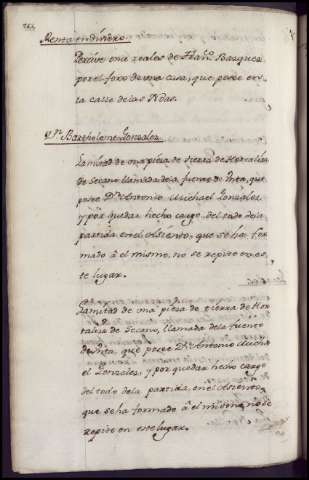 Renta en dinero
Percive once reales de Fran.co Basquez
por el foro de una casa, que posee en
la calle de las Heras.
D.n Bartholome Gonzalez
La mitad de una pieza de tierra de Hortaliza
de secano llamada de la fuente de Inta, que
posee D.n Antonio Michael Gonzalez,
y por quedar hecho cargo del todo de la
partida en el Asiento, que se ha for
mado â el mismo, no se repite en es
te lugar.
La mitad de una pieza de tierra de Hor
taliza de Secano, llamada de la fuente
de Inta, que posee D.n Antonio Micha
el Gonzalez, y por quedar hecho cargo
del todo de la partida, en el Asiento,
que se ha formado â el mismo, no se
repite en este lugar.